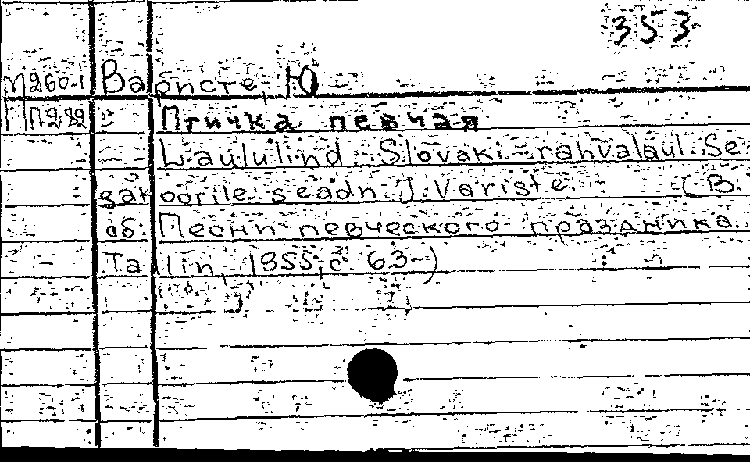 353
М260.1 Варисте, Ю
П П222 Птичка певчая
Laululind. Slovaki rahvalaul. Se-
gakoorile seadn. J. Variste. (В.
сб. Песни певческого праздника.
Tallin, 1955, с 63-)